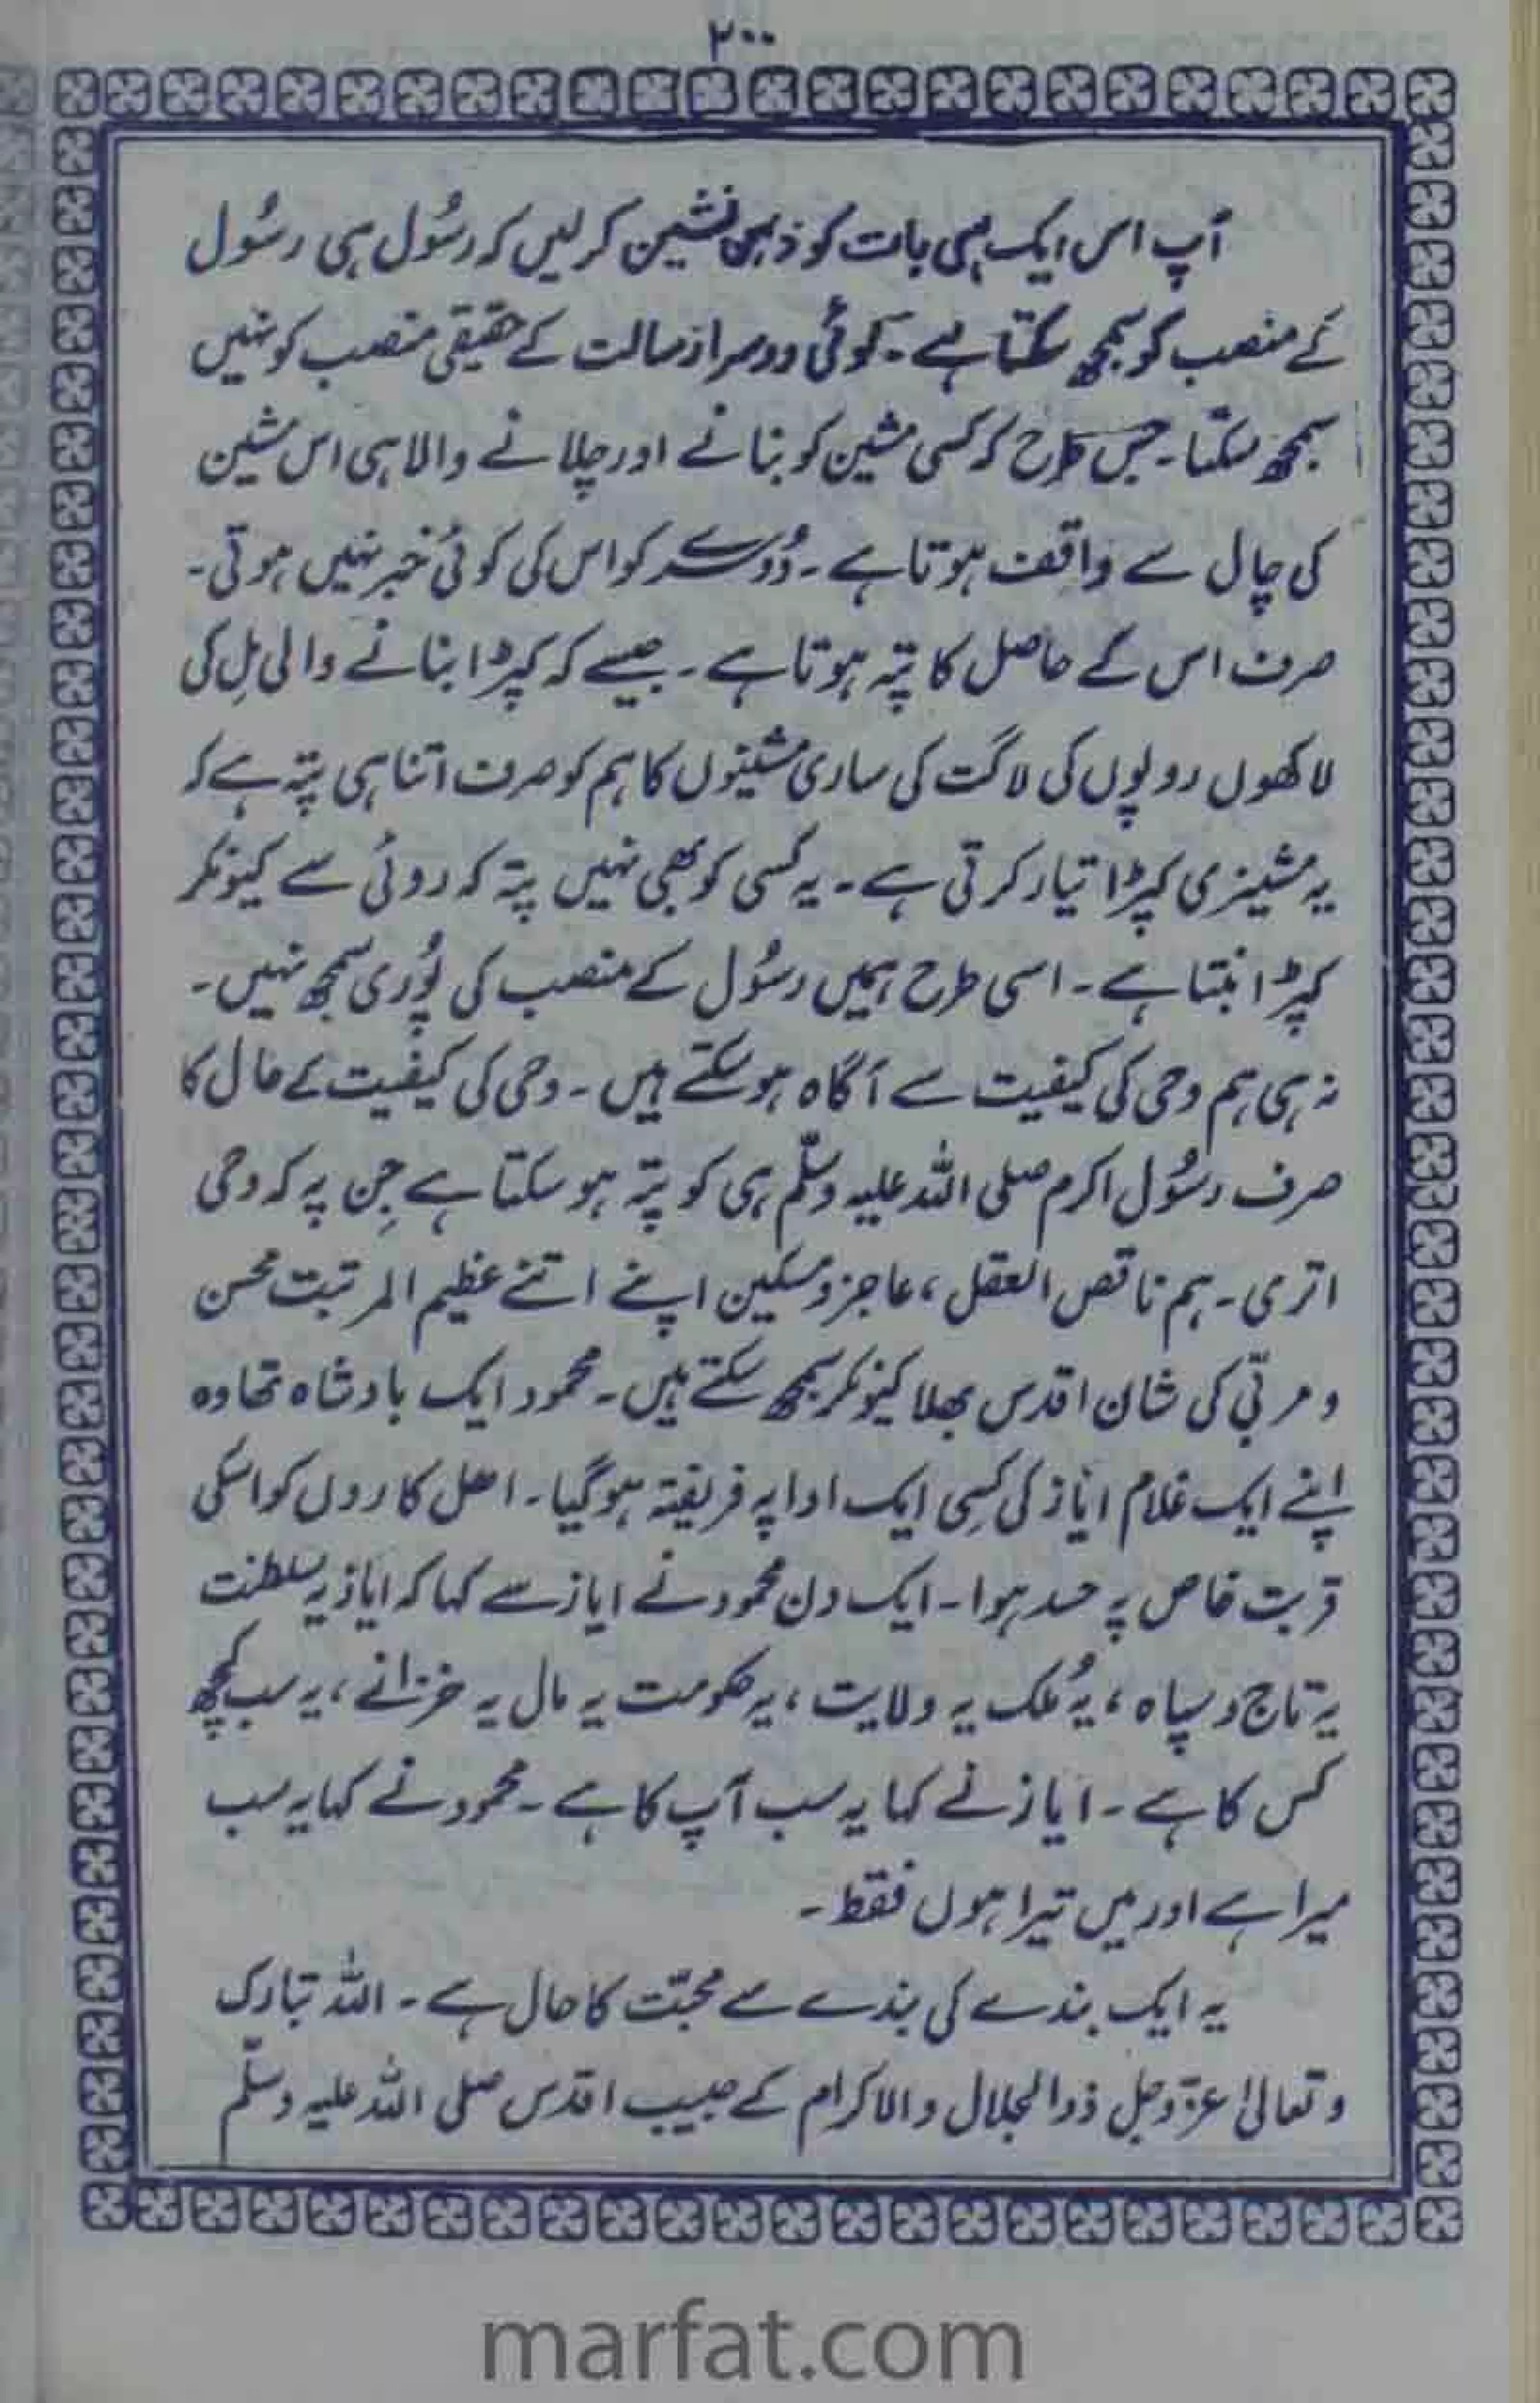 ۲۰۰
آپ اس ایک ہی بات کو ذہن نشین کر لیں کہ رسُول ہی رسُول
کے منصب کو سمجھ سکتا ہے۔ کوئی دوسرا رسالت کے حقیقی منصب کو نہیں
سمجھ سکتا۔ جس طرح کہ کسی مشین کو بنانے اور چلانے والا ہی اس مشین
کی چال سے واقف ہوتا ہے۔ دُوسرے کو اس کی کوئی خبر نہیں ہوتی۔
صرف اس کے حاصل کا پتہ ہوتا ہے۔ جیسے کہ کپڑا بنانے والی مِل کی
لاکھوں روپوں کی لاگت کی ساری مشینوں کا ہم کو صرف اتنا ہی پتہ ہے کہ
یہ مشینری کپڑا تیار کرتی ہے۔ یہ کسی کو بھی نہیں پتہ کہ روئی سے کیونکر
کپڑا بنتا ہے۔ اسی طرح ہمیں رسُول کے منصب کی پُوری سمجھ نہیں۔
نہ ہی ہم وحی کی کیفیت سے آگاہ ہو سکتے ہیں۔ وحی کی کیفیت کے حال کا
صرف رسُول اکرم صلی اللہ علیہ وسلّم ہی کو پتہ ہو سکتا ہے جِن پہ کہ وحی
اتری۔ ہم ناقص العقل، عاجز و مسکین اپنے اتنے عظیم المرتبت محسن
و مربّی کی شان اقدس بھلا کیونکر سمجھ سکتے ہیں۔ محمود ایک بادشاہ تھا وہ
اپنے ایک غلام ایاز کی کسِی ایک ادا پہ فریفتہ ہو گیا۔ اھل کاروں کو اسکی
قربت خاص پہ حسد ہوا۔ ایک دن محمود نے ایاز سے کہا کہ ایاز یہ سلطنت
یہ تاج و سپاہ، یہ مُلک یہ ولایت، یہ حکومت یہ مال یہ خزانے، یہ سب کچھ
کس کا ہے۔ ایاز نے کہا یہ سب آپ کا ہے۔ محمود نے کہا یہ سب
میرا ہے اور میں تیرا ہوں فقط۔
یہ ایک بندے کی بندے سے محبّت کا حال ہے۔ اللہ تبارک
و تعالیٰ عزّ و جل ذوالجلال والاکرام کے حبیب اقدس صلی اللہ علیہ وسلّم
marfat.com